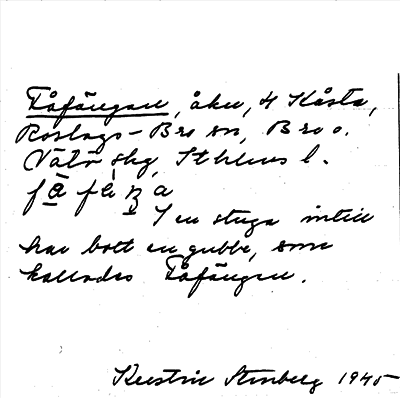 Fåfängan, åker, 4 Kåsta,
Roslags-Bro sn, Bro o.
Vätö skg, Sthlms l.
få fäŋa
I en stuga intill
har bott en gubbe, som
kallades Fåfängen.
Kerstin Stenberg 1945